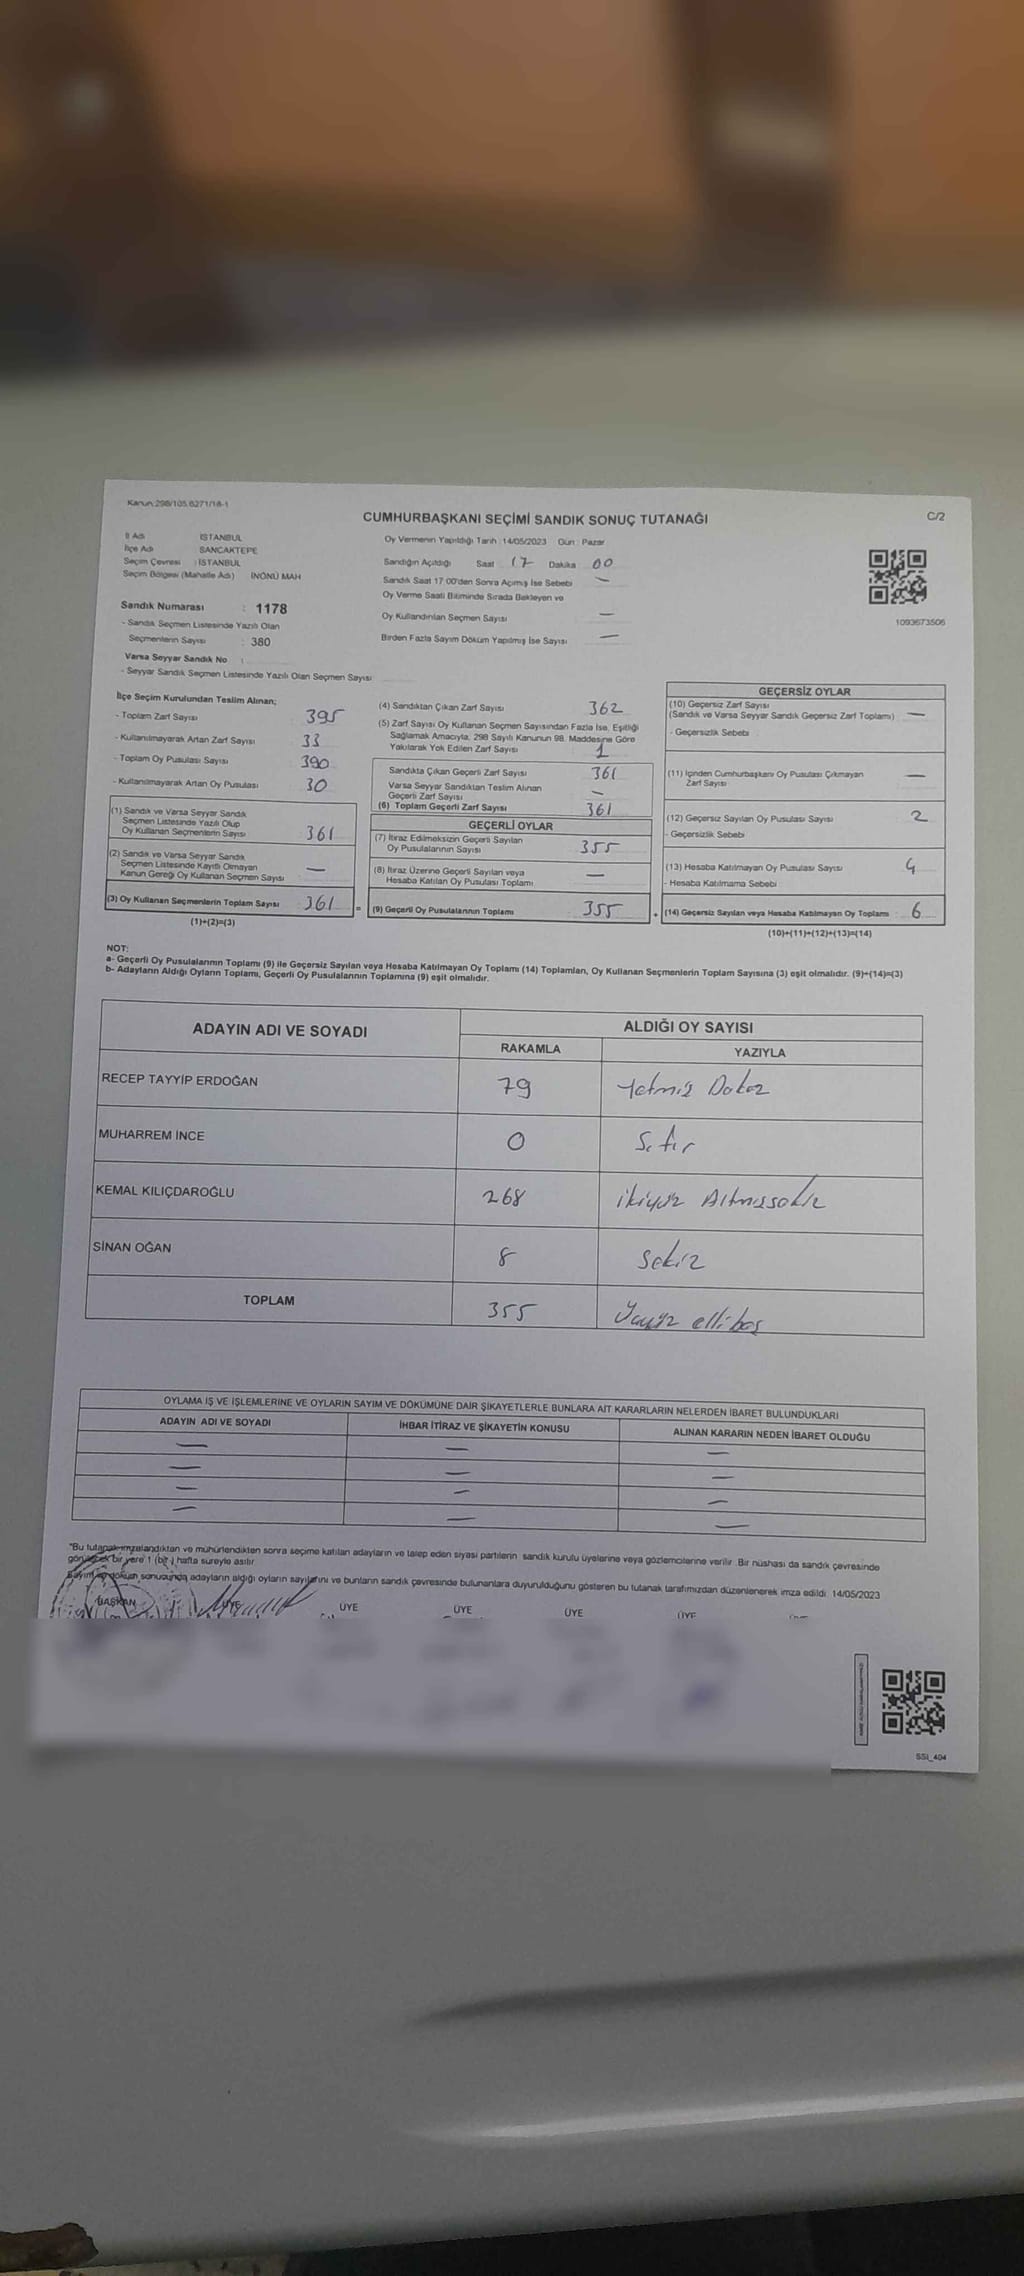 Kanun:298/105,6271/18-1
CUMHURBAŞKANI SEÇİMİ SANDIK SONUÇ TUTANAĞI
C/2
İl Adı İSTANBUL
İlçe Adı SANCAKTEPE
Seçim Çevresi : İSTANBUL
Seçim Bölgesi (Mahalle Adı) İNÖNÜ MAH
Sandık Numarası : 1178
- Sandık Seçmen Listesinde Yazılı Olan
Seçmenlerin Sayısı : 380
Varsa Seyyar Sandık No :
- Seyyar Sandık Seçmen Listesinde Yazılı Olan Seçmen Sayısı:
Oy Vermenin Yapıldığı Tarih : 14/05/2023 Gün : Pazar
Sandığın Açıldığı Saat 17 Dakika 00
Sandık Saat 17:00'den Sonra Açımış İse Sebebi —
Oy Verme Saati Bitiminde Sırada Bekleyen ve
Oy Kullandırılan Seçmen Sayısı —
Birden Fazla Sayım Döküm Yapılmış İse Sayısı —
1093673506
İlçe Seçim Kurulundan Teslim Alınan;
- Toplam Zarf Sayısı 395
- Kullanılmayarak Artan Zarf Sayısı 33
- Toplam Oy Pusulası Sayısı 390
- Kullanılmayarak Artan Oy Pusulası 30
(1) Sandık ve Varsa Seyyar Sandık
Seçmen Listesinde Yazılı Olup
Oy Kullanan Seçmenlerin Sayısı 361
(2) Sandık ve Varsa Seyyar Sandık
Seçmen Listesinde Kayıtlı Olmayan
Kanun Gereği Oy Kullanan Seçmen Sayısı —
(3) Oy Kullanan Seçmenlerin Toplam Sayısı : 361 =
(1)+(2)=(3)
(4) Sandıktan Çıkan Zarf Sayısı 362
(5) Zarf Sayısı Oy Kullanan Seçmen Sayısından Fazla İse, Eşitliği
Sağlamak Amacıyla, 298 Sayılı Kanunun 98. Maddesine Göre
Yakılarak Yok Edilen Zarf Sayısı 1
Sandıkta Çıkan Geçerli Zarf Sayısı 361
Varsa Seyyar Sandıktan Teslim Alınan
Geçerli Zarf Sayısı —
(6) Toplam Geçerli Zarf Sayısı 361
GEÇERLİ OYLAR
(7) İtiraz Edilmeksizin Geçerli Sayılan
Oy Pusulalarının Sayısı 355
(8) İtiraz Üzerine Geçerli Sayılan veya
Hesaba Katılan Oy Pusulası Toplamı —
(9) Geçerli Oy Pusulalarının Toplamı 355 +
GEÇERSİZ OYLAR
(10) Geçersiz Zarf Sayısı
(Sandık ve Varsa Seyyar Sandık Geçersiz Zarf Toplamı) —
- Geçersizlik Sebebi
(11) İçinden Cumhurbaşkanı Oy Pusulası Çıkmayan
Zarf Sayısı —
(12) Geçersiz Sayılan Oy Pusulası Sayısı 2
- Geçersizlik Sebebi
(13) Hesaba Katılmayan Oy Pusulası Sayısı 4
- Hesaba Katılmama Sebebi
(14) Geçersiz Sayılan veya Hesaba Katılmayan Oy Toplamı : 6
(10)+(11)+(12)+(13)=(14)
NOT:
a- Geçerli Oy Pusulalarının Toplamı (9) ile Geçersiz Sayılan veya Hesaba Katılmayan Oy Toplamı (14) Toplamları, Oy Kullanan Seçmenlerin Toplam Sayısına (3) eşit olmalıdır. (9)+(14)=(3)
b- Adayların Aldığı Oyların Toplamı, Geçerli Oy Pusulalarının Toplamına (9) eşit olmalıdır.
ADAYIN ADI VE SOYADI ALDIĞI OY SAYISI
RAKAMLA YAZIYLA
RECEP TAYYİP ERDOĞAN 79 Yetmiş Dokuz
MUHARREM İNCE 0 Sıfır
KEMAL KILIÇDAROĞLU 268 ikiyüz Altmışsekiz
SİNAN OĞAN 8 Sekiz
TOPLAM 355 Üçyüz ellibeş
OYLAMA İŞ VE İŞLEMLERİNE VE OYLARIN SAYIM VE DÖKÜMÜNE DAİR ŞİKAYETLERLE BUNLARA AİT KARARLARIN NELERDEN İBARET BULUNDUKLARI
ADAYIN ADI VE SOYADI İHBAR İTİRAZ VE ŞİKAYETİN KONUSU ALINAN KARARIN NEDEN İBARET OLDUĞU
— — —
— — —
— — —
— — —
*Bu tutanak imzalandıktan ve mühürlendikten sonra seçime katılan adayların ve talep eden siyasi partilerin sandık kurulu üyelerine veya gözlemcilerine verilir. Bir nüshası da sandık çevresinde
görülecek bir yere 1 (bir) hafta süreyle asılır.
Sayım ve döküm sonucunda adayların aldığı oyların sayılarını ve bunların sandık çevresinde bulunanlara duyurulduğunu gösteren bu tutanak tarafımızdan düzenlenerek imza edildi. 14/05/2023
BAŞKAN ÜYE ÜYE ÜYE ÜYE ÜYE
SSI_404